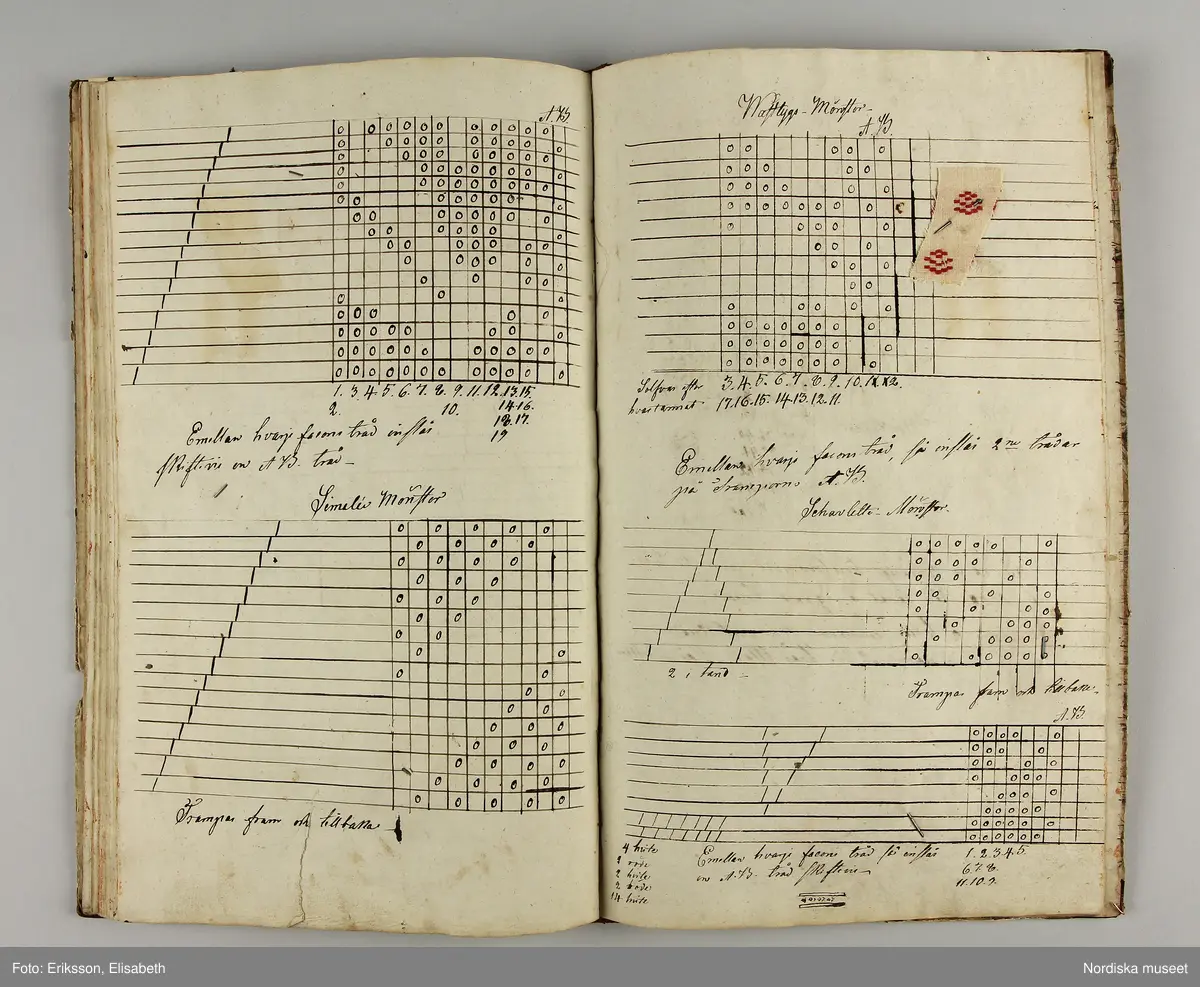 A.B.
1. 3. 4. 5. 6. 7. 8. 9. 11. 12. 13. 15.
2. 10. 14. 16.
18. 17.
19
Emellan hvarje facons tråd inslås
skiftevis en A B. tråd
Simeliè Mönstor
Trampas fram och tillbaka
Mönstor
A.B.
Solfvas efter 3. 4. 5. 6. 7. 8. 9. 10. 11. 12.
hvartannat 17. 16. 15. 14. 13. 12. 11.
Emellan hvarje facons tråd, så inslås 2ne trådar
på Tramporne A.B.
Mönstor
2 i tand
Trampas fram och tillbaka
A.B.
4 hvite
2 röde
2 hvite
2 röde
14 hvite
Emellan hvarje facons tråd så inslås
en A.B. tråd skiftevis
1. 2. 3. 4. 5.
6. 7. 8.
11. 10. 9.
Foto: Eriksson, Elisabeth
Nordiska museet